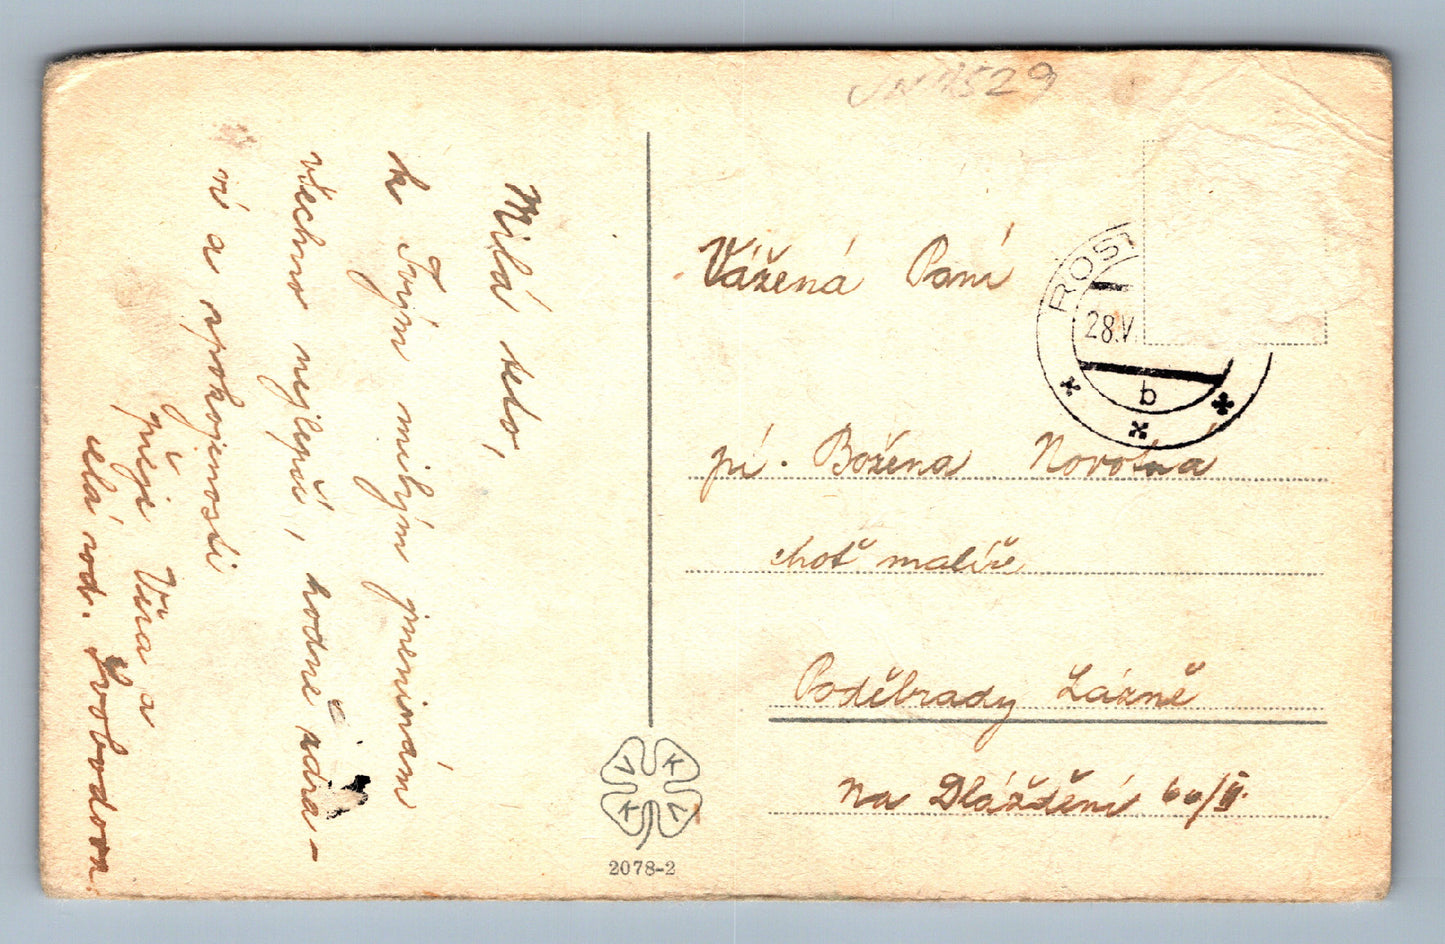 Milá teto,
k Tvým milým jmeninám
všechno nejlepší, hodně zdra-
ví a spokojenosti
přeje Věra a
celá rod. Svobodova.
2529
Vážená Paní
pí. Božena Novotná
choť malíře
Poděbrady Lázně
na Dláždění 60/II.
ROST
28.V.
b
V K V K
2078-2